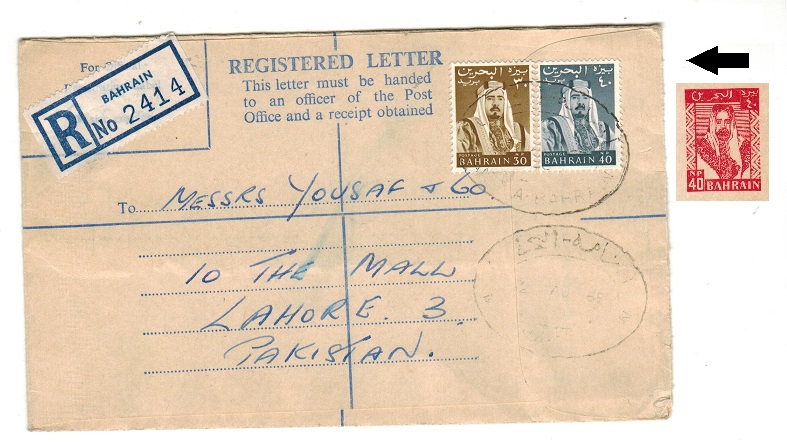 For
BAHRAIN
R No 2414
REGISTERED LETTER
This letter must be handed
to an officer of the Post
Office and a receipt obtained
البحرين
٣٠
POSTAGE N.P.
BAHRAIN 30
البحرين
٤٠
POSTAGE N.P.
BAHRAIN 40
البحرين
٤٠
NP
40 BAHRAIN
To MESSRS YOUSAF & CO.
10 THE MALL
LAHORE. 3
PAKISTAN.